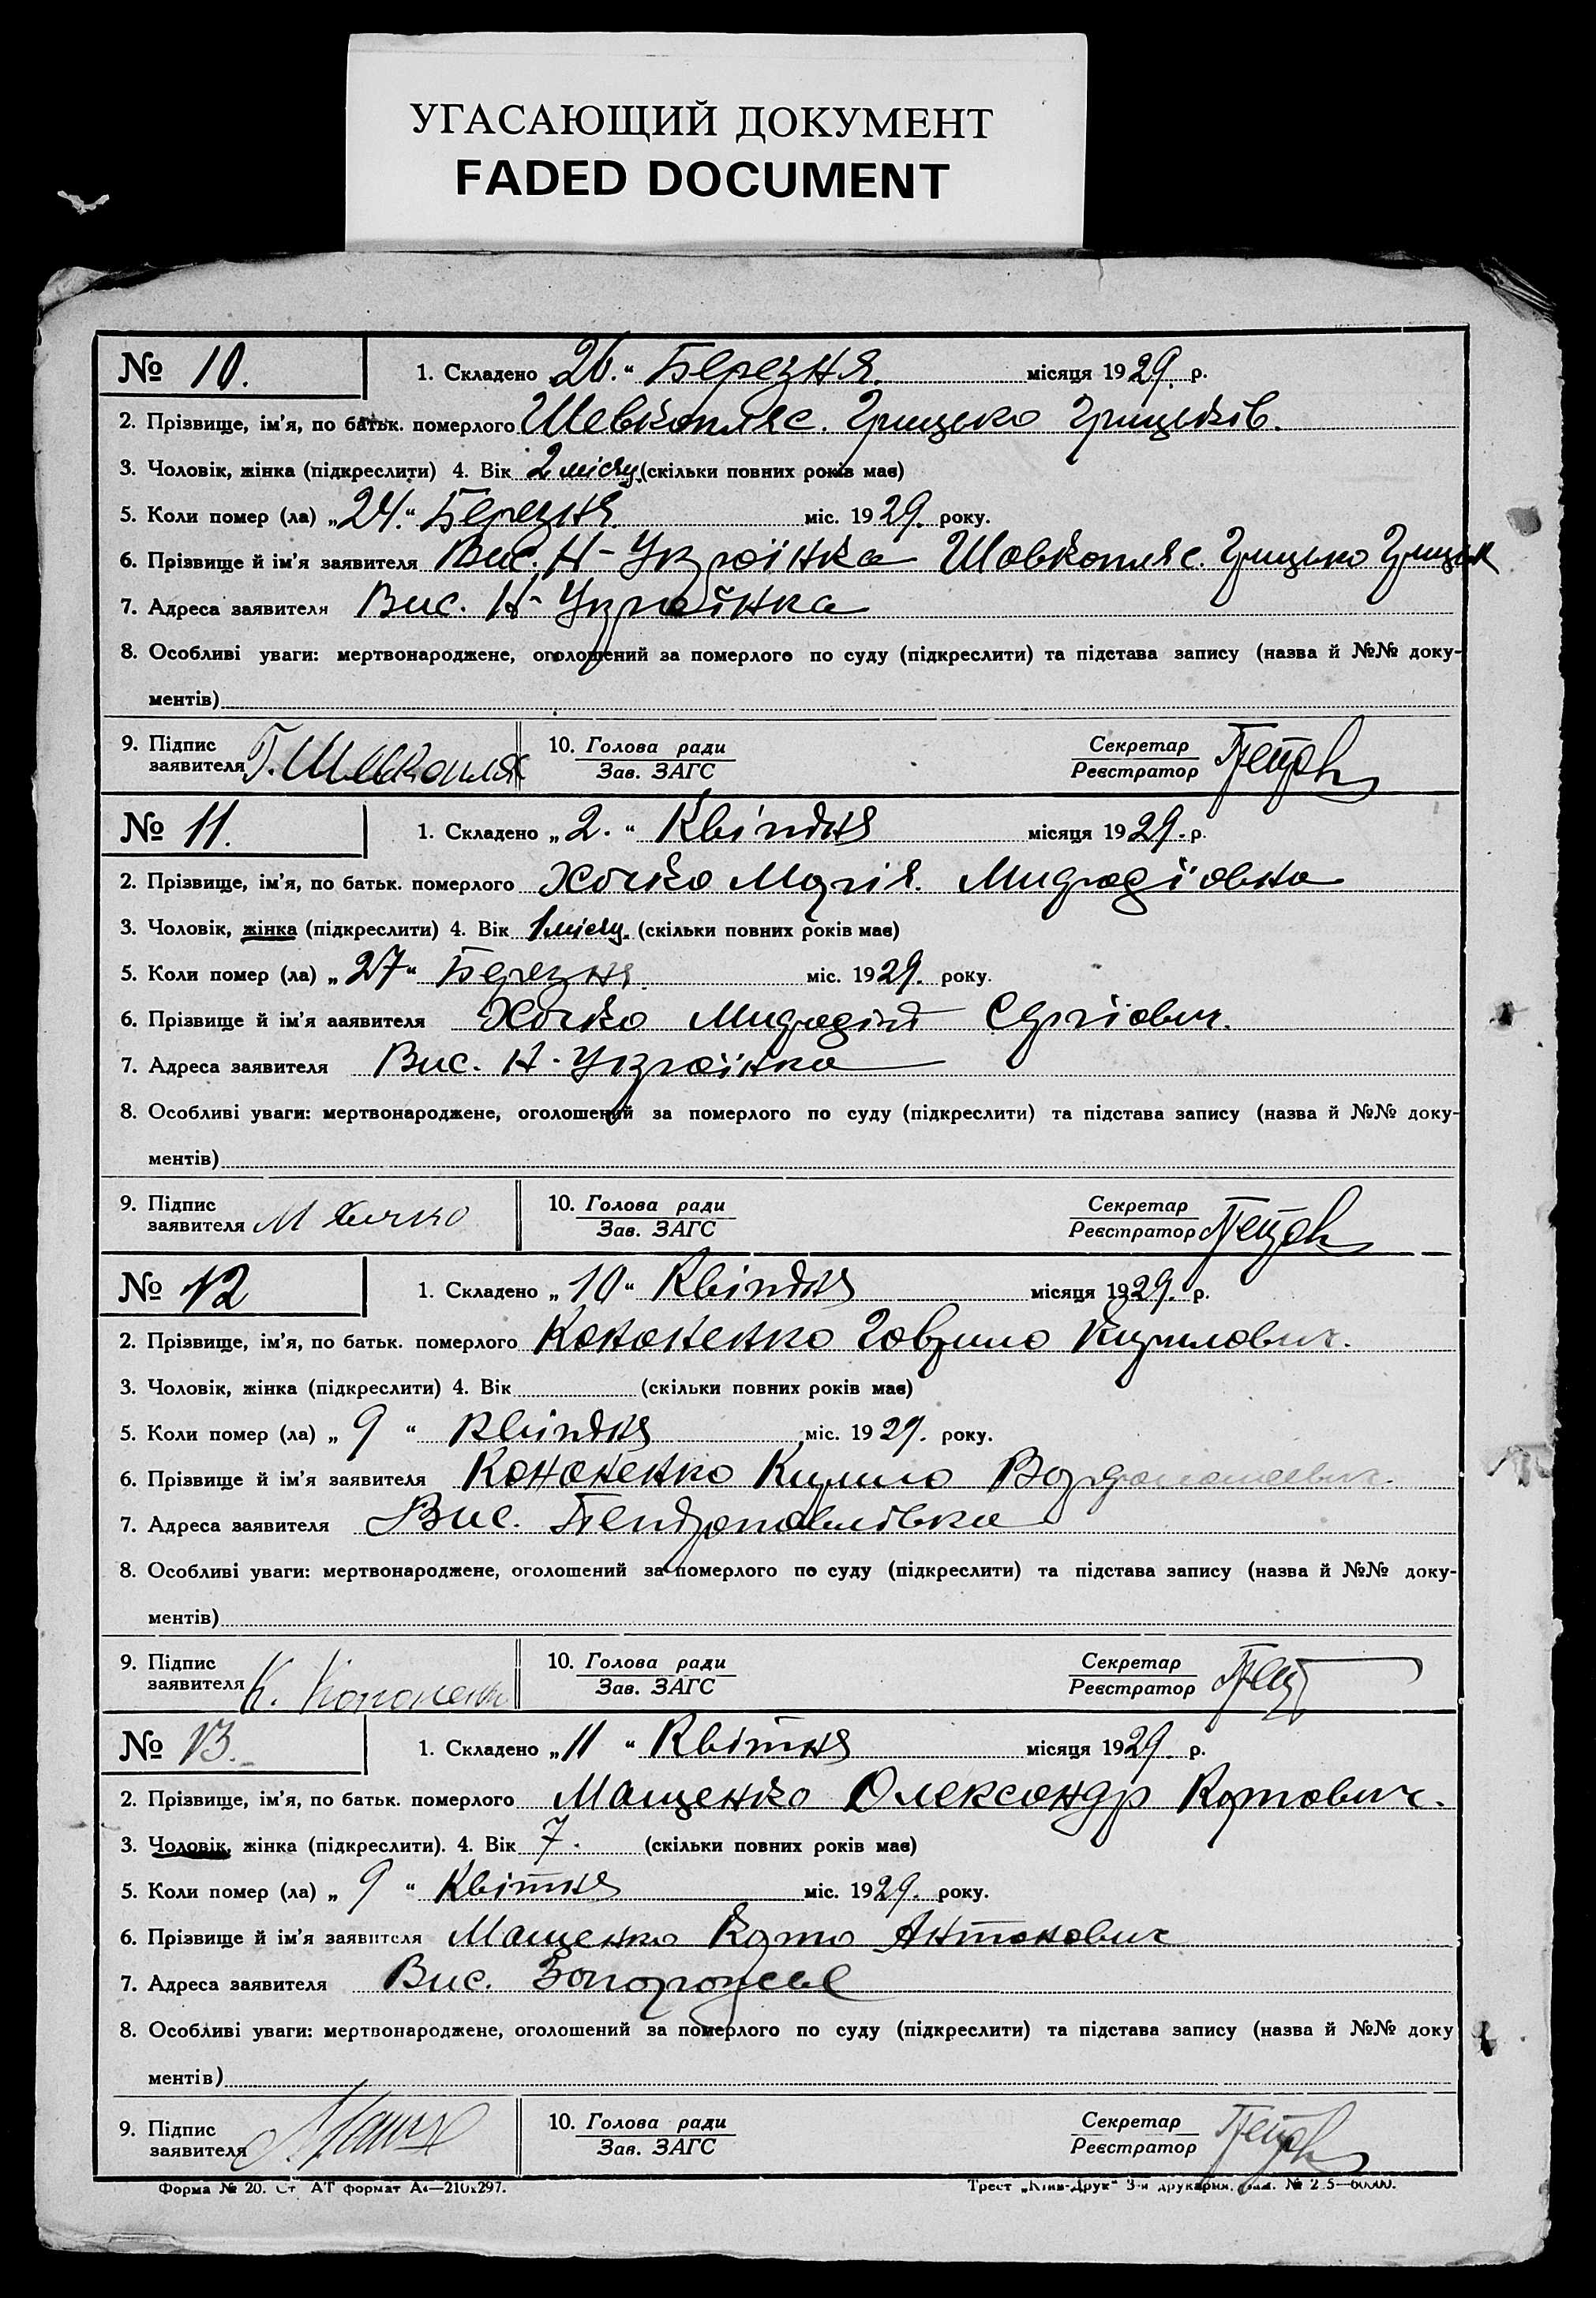 УГАСАЮЩИЙ ДОКУМЕНТ
FADED DOCUMENT
№ 10. 1. Складено 26." Березня. місяця 1929. р.
2. Прізвище, ім'я, по батьк. померлого Шевкопляс. Грицько Грицьків.
3. Чоловік, жінка (підкреслити) 4. Вік 2 місяц. (скільки повних років має)
5. Коли помер (ла) „24." Березня. міс. 1929. року.
6. Прізвище й ім'я заявителя Вис. Н-Українка Шовкопляс. Грицько Грицьк
7. Адреса заявителя Вис. Н-Українка
8. Особливі уваги: мертвонароджене, оголошений за померлого по суду (підкреслити) та підстава запису (назва й №№ доку-
ментів)
9. Підпис заявителя Г. Шевкопляс 10. Голова ради Зав. ЗАГС Секретар Реєстратор
№ 11. 1. Складено „2." Квітня місяця 1929. р.
2. Прізвище, ім'я, по батьк. померлого Хочко Марія. Мидродіовна
3. Чоловік, жінка (підкреслити) 4. Вік 1 місяц. (скільки повних років має)
5. Коли помер (ла) „27" Березня. міс. 1929. року.
6. Прізвище й ім'я ааявителя Хочко Сергіович.
7. Адреса заявителя Вис. Н-Українка
8. Особливі уваги: мертвонароджене, оголошений за померлого по суду (підкреслити) та підстава запису (назва й №№ доку-
ментів)
9. Підпис заявителя М Хочко 10. Голова ради Зав. ЗАГС Секретар Реєстратор
№ 12 1. Складено „10" Квітня місяця 1929. р.
2. Прізвище, ім'я, по батьк. померлого Кононенко Гаврило Кирилович.
3. Чоловік, жінка (підкреслити) 4. Вік (скільки повних років має)
5. Коли помер (ла) „9" Квітня міс. 1929. року.
6. Прізвище й ім'я заявителя Кононенко Кирило Варфоломеевич.
7. Адреса заявителя Вис. Петропавлівка
8. Особливі уваги: мертвонароджене, оголошений за померлого по суду (підкреслити) та підстава запису (назва й №№ доку-
ментів)
9. Підпис заявителя К. Кононенко 10. Голова ради Зав. ЗАГС Секретар Реєстратор
№ 13. 1. Складено „11" Квітня місяця 1929. р.
2. Прізвище, ім'я, по батьк. померлого Мащенко Олександр Карпович.
3. Чоловік, жінка (підкреслити). 4. Вік 7. (скільки повних років має)
5. Коли помер (ла) „9" Квітня міс. 1929. року.
6. Прізвище й ім'я заявителя Мащенко Карпо Антонович
7. Адреса заявителя Вис. Запорожсье
8. Особливі уваги: мертвонароджене, оголошений за померлого по суду (підкреслити) та підстава запису (назва й №№ доку
ментів)
9. Підпис заявителя 10. Голова ради Зав. ЗАГС Секретар Реєстратор
Форма № 20. Ст АТ формат А4—210x297. Трест „Київ-Друк" 3-я друкарня. Зам. № 2 5—60000.